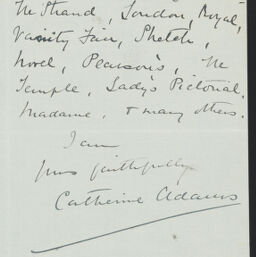 The Strand, London, Royal,
Vanity Fair, Sketch,
Novel, Pearson's, The
Temple, Lady's Pictorial,
Madame, & many others.
I am
yours faithfully
Catherine Adams